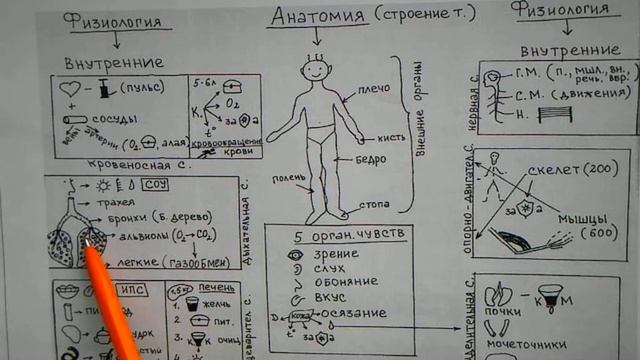 Физиология
Анатомия (строение т.)
Физиология
Внутренние
Внутренние
(пульс)
сосуды
вены
артерии (O₂, алая)
5-6л
К.
O₂
за а
t°
кровообращение
крови
Кровеносная с.
СОУ
трахея
бронхи (б. дерево)
альвиолы (O₂→CO₂)
легкие (газообмен)
дыхательная с.
ИПС
1,5кг печень
1. желчь
2. пит.
3. К К очищ.
4.
плечо
кисть
бедро
голень
стопа
Внешние органы
5 орган. чувств
зрение
слух
обоняние
вкус
кожа осязание
D
t°
за а
Г.М. (п., мшл., вн., речь, вор.)
С.М. (движения)
Н.
нервная с.
скелет (200)
за а
мышцы (600)
опорно-двигател. с.
К М
почки
мочеточники